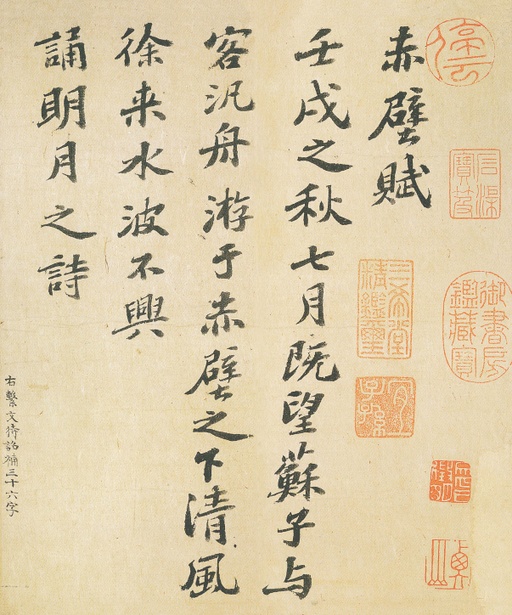 石渠寶笈
御書房鑑藏寶
赤壁賦
三希堂精鑑璽
宜子孫
壬戌之秋七月既望蘇子与
客汎舟游于赤壁之下清風
徐来水波不興
誦明月之詩
右繫文待詔補三十六字